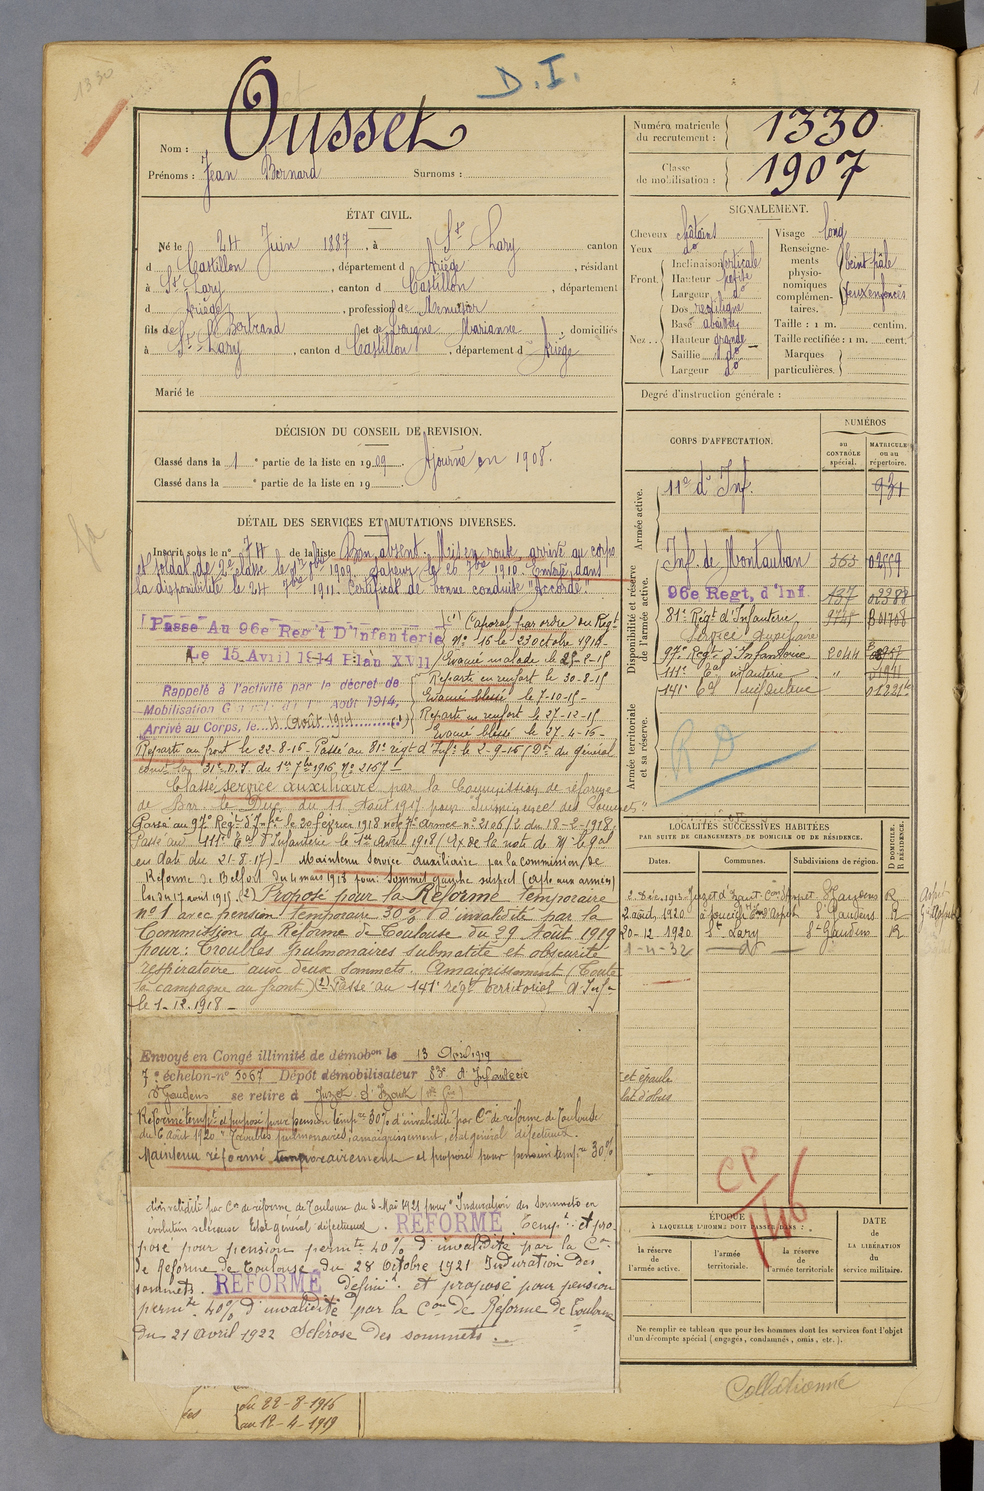 1330
D. I.
Nom : Ousset
Prénoms : Jean Bernard Surnoms :
Numéro matricule du recrutement : 1330
Classe de mobilisation : 1907
ÉTAT CIVIL.
Né le 24 Juin 1887, à St Lary canton
d Castillon, département d Ariège, résidant
à St Lary, canton d Castillon, département
d Ariège, profession de Menuisier
fils de Bertrand et de Lougne Marianne, domiciliés
à St Lary, canton d Castillon, département d Ariège
Marié le
SIGNALEMENT.
Cheveux châtains
Yeux do
Front. Inclinaison verticale
Hauteur petite
Largeur do
Nez. Dos rectiligne
Base abaissée
Hauteur grande
Saillie do
Largeur do
Visage long
Renseignements physionomiques complémentaires. teint pâle
Yeux enfoncés
Taille : 1 m. centim.
Taille rectifiée : 1 m. cent.
Marques particulières.
Degré d'instruction générale :
DÉCISION DU CONSEIL DE REVISION.
Classé dans la 1e partie de la liste en 1909. Ajourné en 1908.
Classé dans la e partie de la liste en 19
CORPS D'AFFECTATION.
NUMÉROS
au CONTRÔLE spécial.
MATRICULE ou au répertoire.
Armée active.
11e d'Inf. 931
Disponibilité et réserve de l'armée active.
Inf. de Montauban 363
96e Regt, d'Inf. 137
81e Régt d'Infanterie
Service auxiliaire
97e Régt d'Infanterie 2044
111e Eal infanterie "
141e Eal Infanterie
Armée territoriale et sa réserve.
R D
DÉTAIL DES SERVICES ET MUTATIONS DIVERSES.
Inscrit sous le no 74 de la liste Bon absent. Mis en route, arrivé au corps
et soldat de 2e classe le 1er 8bre 1909. Sapeur le 26 7bre 1910. Envoyé dans
la disponibilité le 24 7bre 1911. Certificat de bonne conduite "Accordé".
Passé Au 96e Reg't D'Infanterie
Le 15 Avril 1914 Plan XVII
Rappelé à l'activité par le décret de
Mobilisation Générale du 1er Août 1914,
Arrivé au Corps, le 11 Août 1914
(1) Caporal par ordre du Régt
No 16 le 23 octobre 1914
Evacué malade le 25-2-15
Reparti en renfort le 30-8-15
Evacué blessé le 7-10-15
Reparti en renfort le 27-12-15
Evacué blessé le 27-4-16
Reparti au front le 22-8-16 - Passé au 81e régt d'Inf. le 2-9-16 (Don du général
comt la 31e D.I. du 1er 7bre 1916, No 2167
Classé service auxiliaire par la Commission de réforme
de Bar-le-Duc du 11 Août 1917 pour
Passé au 97e Régt d'Inf.ie le 20 février 1918 note 7e Armée no 2106/2 du 18-2-1918.
Passé au 111e Eal d'Infanterie le 1er Avril 1918 (Ap. de la note de Mr le Gal
en date du 21-8-17) - Maintenu Service Auxiliaire par la commission de
Réforme de Belfort du 4 mars 1918 pour: Sommet gauche suspect (apte aux armées)
loi du 17 août 1915 (2) Proposé pour la Réforme temporaire
No 1 avec pension temporaire 30% d'invalidité par la
Commission de Réforme de Toulouse du 29 Août 1919
pour: Troubles pulmonaires submatité et obscurité
respiratoire aux deux sommets. Amaigrissement (Toute
la campagne au front) (2) Passé au 141e régt territorial d'Inf.
le 1-12-1918 -
Envoyé en Congé illimité de démobon le 13 Avril 1919
7e échelon-no 5067 Dépôt démobilisateur 83e d'Infanterie
St Gaudens se retire à Juzet d'Izaut
Réformé tempre et proposé pour pension tempre 30% d'invalidité par Con de réforme de Toulouse
du 6 Août 1920. Troubles pulmonaires, amaigrissement, état général défectueux.
Maintenu réformé temporairement et proposé pour pension tempre 30%
d'invalidité par Con de réforme de Toulouse du 3 Mai 1921 pour "Induration des sommets en
évolution scléreuse Etat général défectueux. RÉFORMÉ Tempt et pro
posé pour pension permte 40% d'invalidité par la Con
de Réforme de Toulouse du 28 Octobre 1921 Induration des
sommets. RÉFORMÉ définit et proposé pour pension
permte 40% d'invalidité par la Con de Réforme de Toulouse
du 21 avril 1922 Sclérose des sommets
du 22-8-1916
au 12-4-1919
LOCALITÉS SUCCESSIVES HABITÉES
PAR SUITE DE CHANGEMENTS DE DOMICILE OU DE RÉSIDENCE.
Dates. Communes. Subdivisions de région. D DOMICILE. R RÉSIDENCE.
2 Déc. 1913 Juzet d'Izaut Con Aspet St Gaudens R
2 août 1920 St Gaudens R
20-12-1920 St Lary St Gaudens R
1-4-32 do
et épaule
CP
146
ÉPOQUE
À LAQUELLE L'HOMME DOIT PASSER DANS :
la réserve de l'armée active.
l'armée territoriale.
la réserve de l'armée territoriale
DATE de LA LIBÉRATION du service militaire.
Ne remplir ce tableau que pour les hommes dont les services font l'objet
d'un décompte spécial (engagés, condamnés, omis, etc.).
Collationné